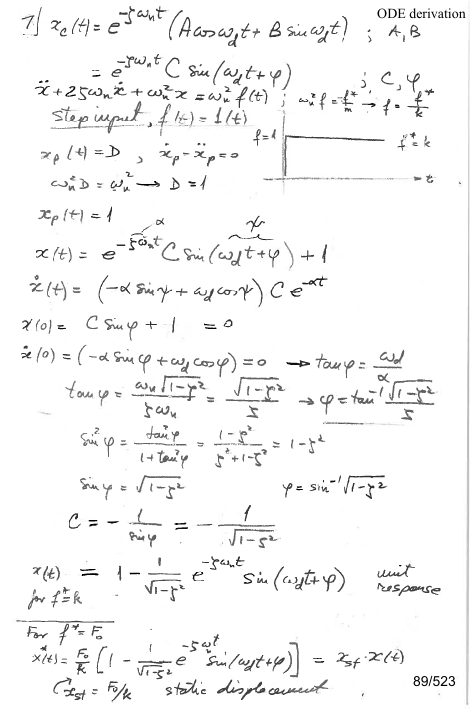 ODE derivation
7) x_c(t) = e^{-ζω_n t} (A cos ω_d t + B sin ω_d t) ; A, B
= e^{-ζω_n t} C sin(ω_d t + φ) ; C, φ
ẍ + 2ζω_n ẋ + ω_n² x = ω_n² f(t) ; ω_n² f = f*/m → f = f*/k
step input, f(t) = 1(t)
f=1
f* = k
x_p(t) = D , ẋ_p = ẍ_p = 0
→ t
ω_n² D = ω_n² → D = 1
x_p(t) = 1
α ψ
x(t) = e^{-ζω_n t} C sin(ω_d t + φ) + 1
ẋ(t) = (-α sin ψ + ω_d cos ψ) C e^{-αt}
x(0) = C sin φ + 1 = 0
ẋ(0) = (-α sin φ + ω_d cos φ) = 0 → tan φ = ω_d/α
tan φ = ω_n√(1-ζ²)/ζω_n = √(1-ζ²)/ζ → φ = tan⁻¹ √(1-ζ²)/ζ
sin² φ = tan² φ/(1 + tan² φ) = (1-ζ²)/(ζ² + 1 - ζ²) = 1 - ζ²
sin φ = √(1-ζ²) φ = sin⁻¹ √(1-ζ²)
C = - 1/sin φ = - 1/√(1-ζ²)
x(t) = 1 - 1/√(1-ζ²) e^{-ζω_n t} sin(ω_d t + φ) unit
for f* = k response
For f* = F₀
x*(t) = F₀/k [1 - 1/√(1-ζ²) e^{-ζωt} sin(ω_d t + φ)] = x_st · x(t)
x_st = F₀/k static displacement
89/523